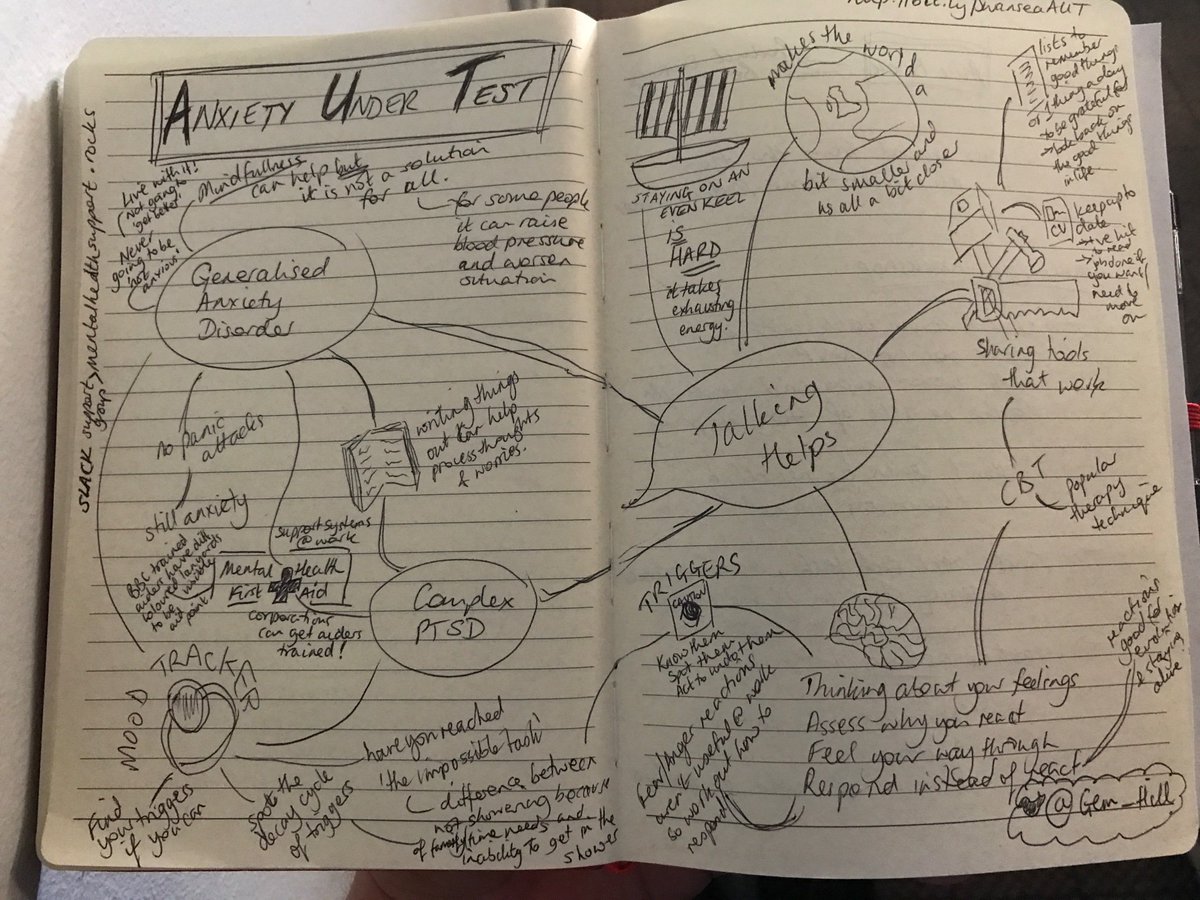 ANXIETY UNDER TEST
Live with it!
Not going to
'get better'
Never
going to be
'not
anxious'
Mindfullness
can help but
it is not a solution
for all.
for some people
it can raise
blood pressure
and worsen
situation
Generalised
Anxiety
Disorder
SLACK support group > mentalhealthsupport.rocks
no panic
attacks
still anxiety
writing things
out can help
process thoughts
& worries.
support systems
@ work
Mental Health
First Aid
corporations
can get aiders
trained!
BBC trained
aiders have diff
coloured lanyards
to be visible
aid point
Complex
PTSD
MOOD
TRACKER
Find
your triggers
if you can
Spot the
decay cycle
of triggers
have you reached
'the impossible task'
difference between
not showering because
of family/time needs and
inability to get in the
shower
STAYING ON AN
EVEN KEEL
IS
HARD
it takes
exhausting
energy.
makes the world
a
bit smaller and
us all a bit closer
lists to
remember
good things
or 1 thing a day
to be grateful for
→ look back on
the good things
in life
CV
keep up to
date
→ +ve hit
to read
→ phdone if
you want/
need to
move
on
Sharing tools
that work
Talking
Helps
CBT
popular
therapy
technique
TRIGGERS
CAUTION
Know them
Spot them
Act to undo them
Fear/Anger reactions
aren't useful @ work
so work out how to
respond
Thinking about your feelings
Assess why you react
Feel your way through
Respond instead of react
reactions
good for
evolution
& staying
alive
@Gem_Hill